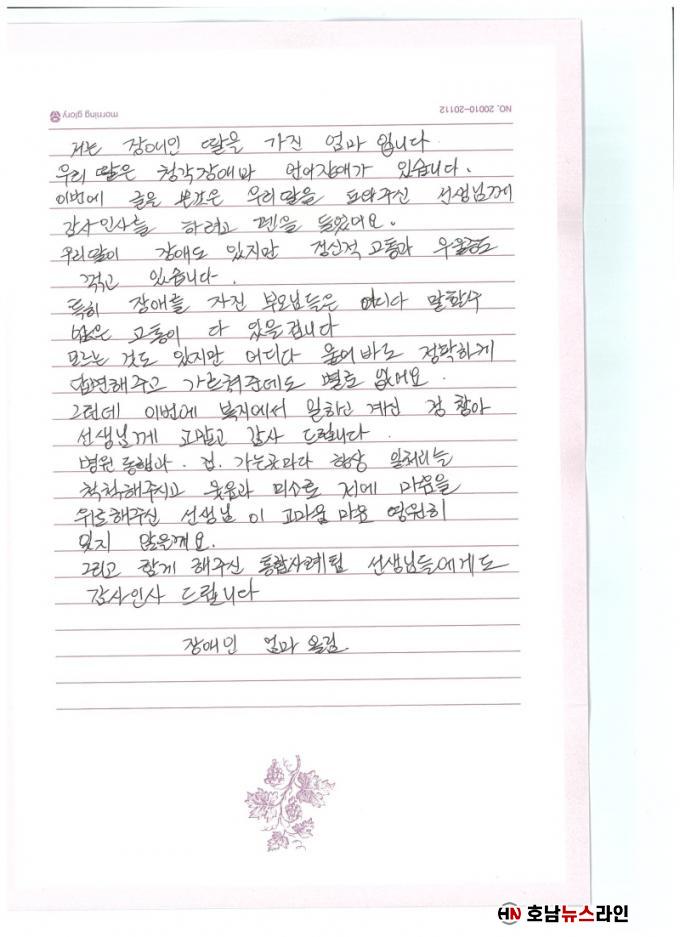 NO. 20010-20112
morning glory
저는 장애인 딸을 가진 엄마 입니다
우리 딸은 청각장애와 언어장애가 있습니다.
이번에 글을 쓴것은 우리딸을 도와주신 선생님께
감사인사를 하려고 펜을 들었어요.
우리딸이 장애도 있지만 정신적 고통과 우울증도
겪고 있습니다.
특히 장애를 가진 부모님들은 어디다 말할수
없은 고통이 다 있을겁니다
모르는 것도 있지만 어디다 물어바도 정확하게
답변해주고 가르쳐주데도 별로 없어요.
그런데 이번에 복지에서 일하고 계신 정
선생님께 고맙고 감사 드립니다.
병원동행과. 집. 가는곳마다 항상 일처리를
척척해주시고 웃음과 미소로 저에 마음을
위로해주신 선생님 이 고마움 마음 영원히
잊지 않을께요.
그리고 함께 해주신 통합사례팀 선생님들에게도
감사인사 드립니다
장애인 엄마 올림.
HN 호남뉴스라인